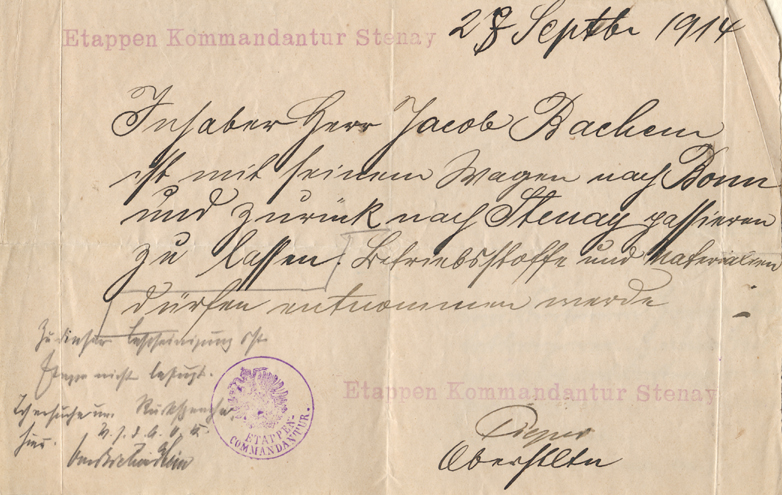 Etappen Kommandantur Stenay
Septbr 1914
Inhaber Herr Jacob Bachem
ist mit seinem Wagen nach Bonn
und zurück nach Stenay passieren
zu lassen. Betriebsstoffe und Materialien
dürfen entnommen werde
Zu dieser Bescheinigung ist
nicht befugt.
hier.
ETAPPEN-
COMMANDANTUR.
Etappen Kommandantur Stenay
Oberstltn